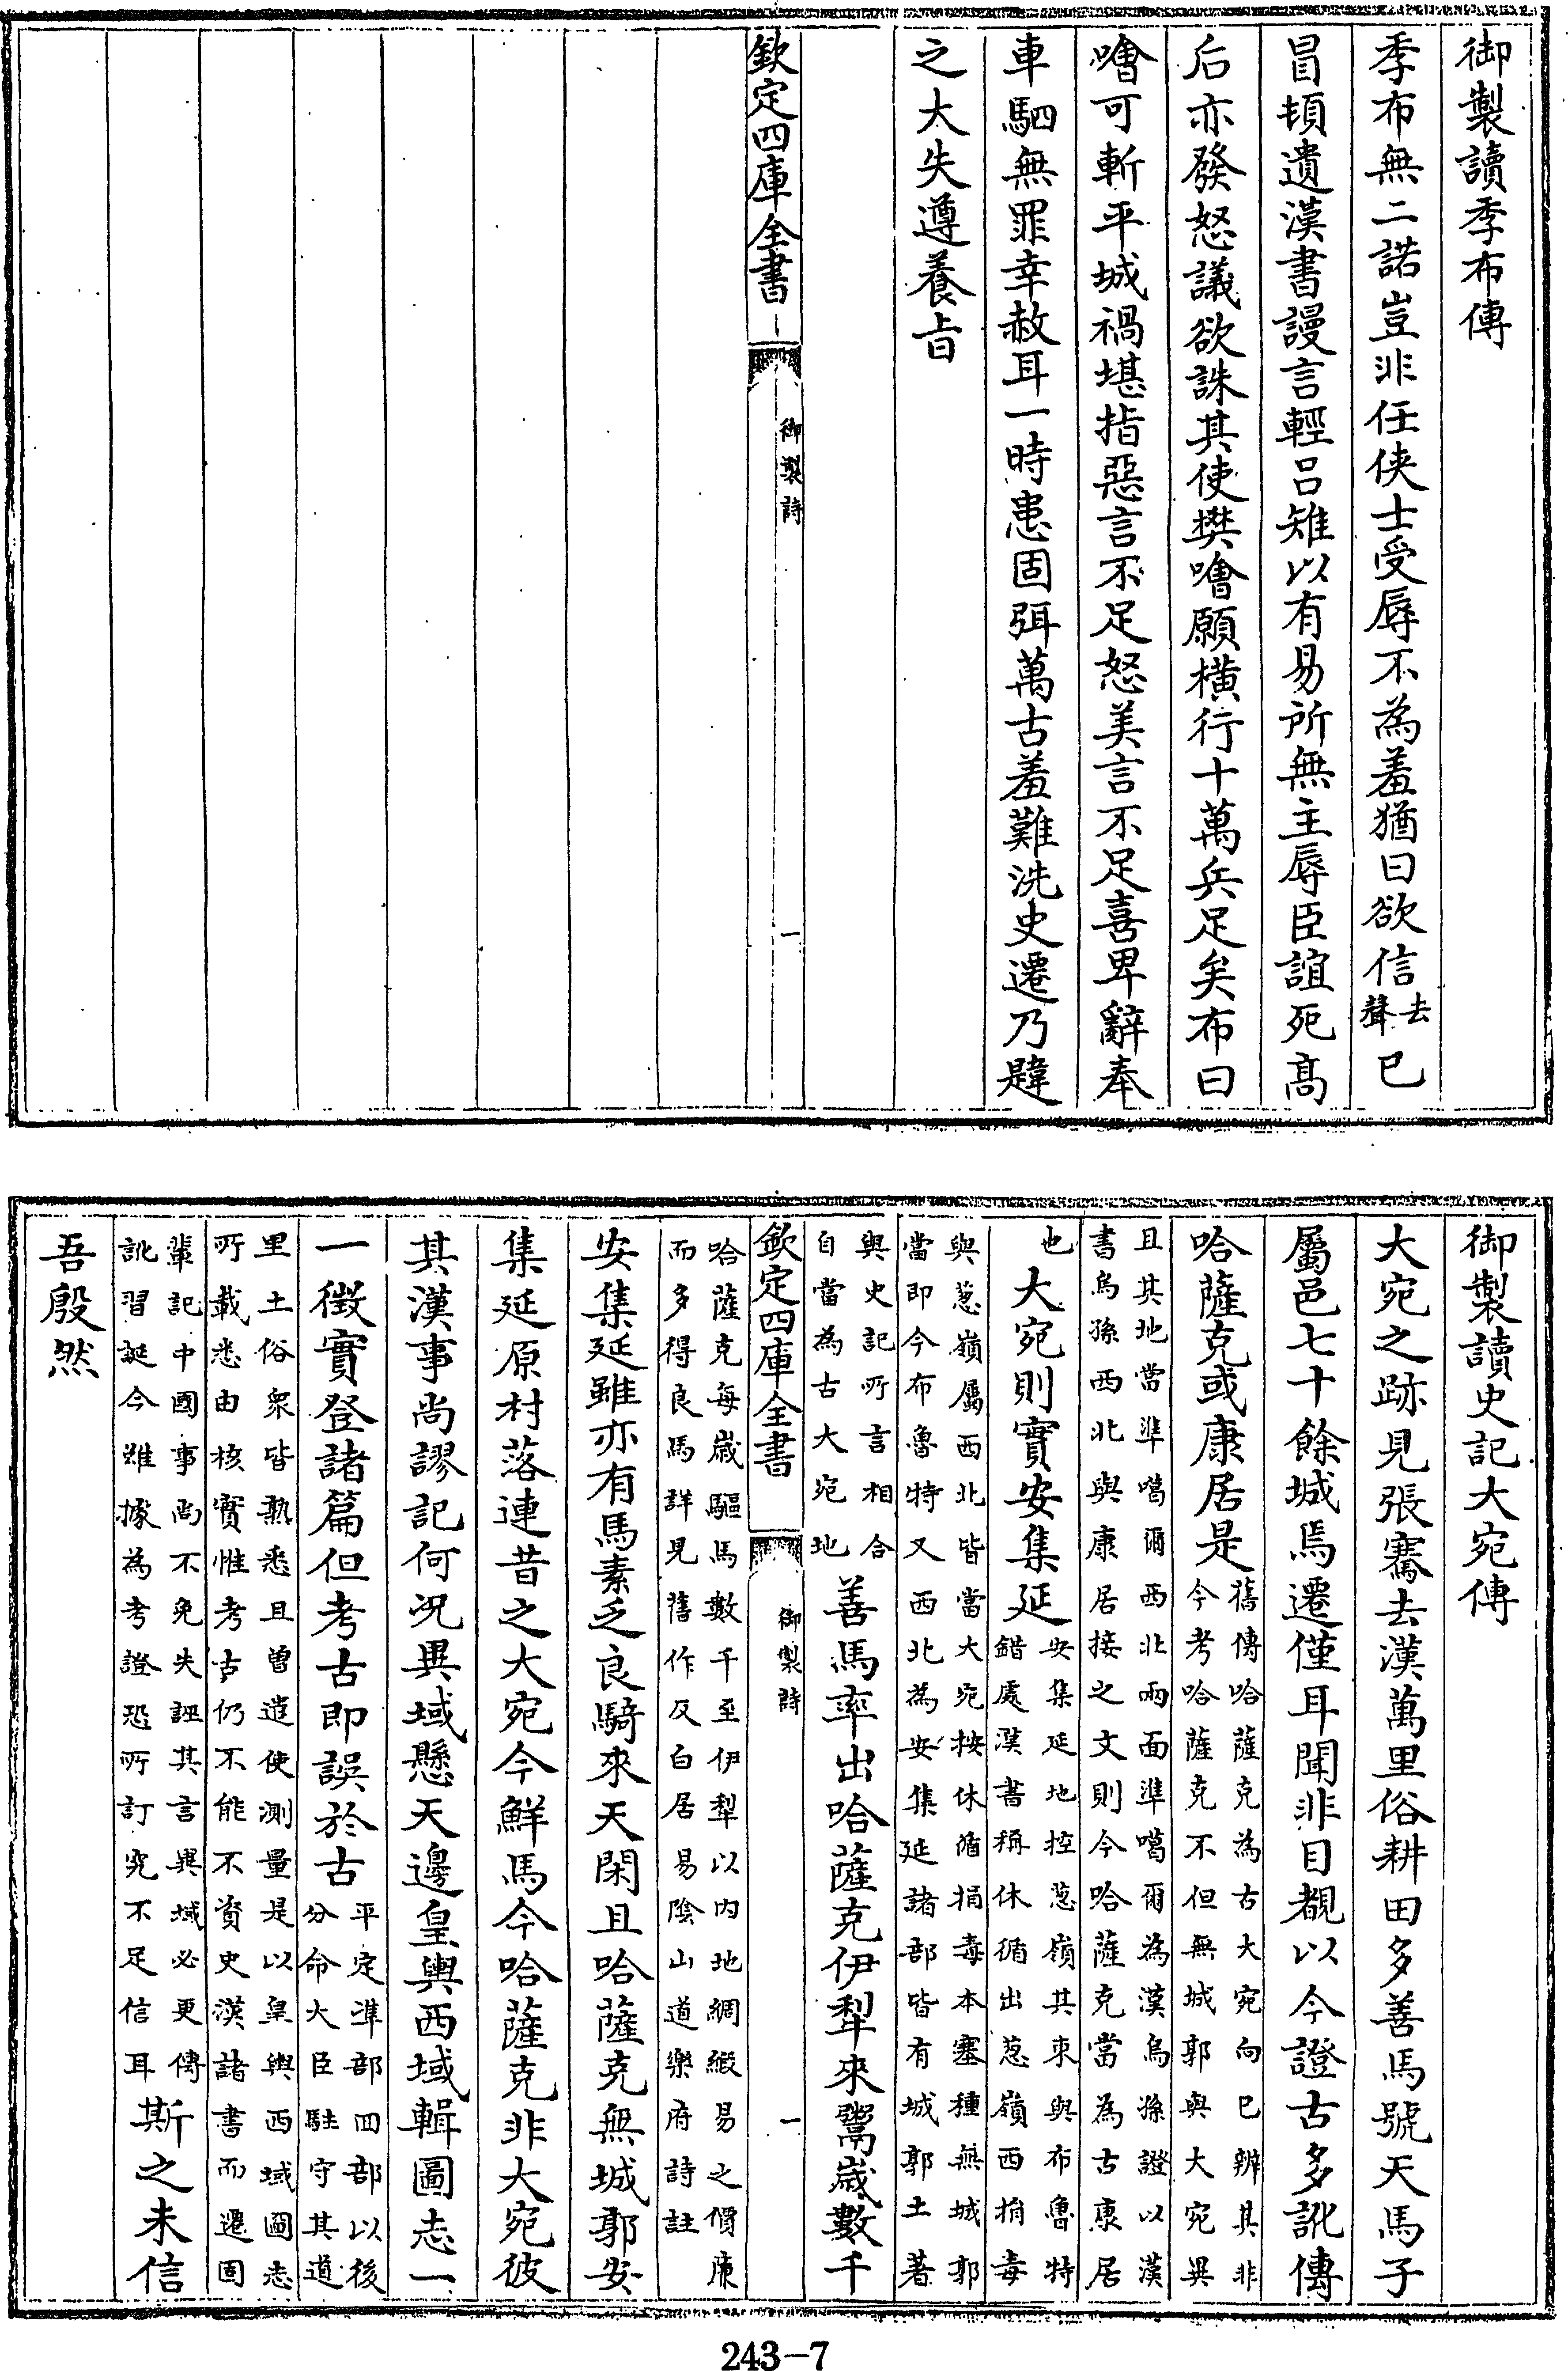 御製讀季布傳
季布無二諾豈非任俠士受辱不為羞猶曰欲信去聲已
冒頓遺漢書謾言輕呂雉以有易所無主辱臣誼死高
后亦發怒議欲誅其使樊噲願橫行十萬兵足矣布曰
噲可斬平城禍堪指惡言不足怒美言不足喜卑辭奉
車駟無罪幸赦耳一時患固弭萬古羞難洗史遷乃韙
之大失遵養旨
欽定四庫全書
御製詩
一
御製讀史記大宛傳
大宛之跡見張騫去漢萬里俗耕田多善馬號天馬子
屬邑七十餘城焉遷僅耳聞非目覩以今證古多訛傳
哈薩克或康居是舊傳哈薩克為古大宛向已辨其非
今考哈薩克不但無城郭與大宛異
且其地當準噶爾西北兩面準噶爾為漢烏孫證以漢
書烏孫西北與康居接之文則今哈薩克當為古康居
也大宛則實安集延安集延地控葱嶺其東與布魯特
錯處漢書稱休循出葱嶺西捐毒
與葱嶺屬西北皆當大宛按休循捐毒本塞種無城郭
當即今布魯特又西北為安集延諸部皆有城郭土著
與史記所言相合
自當為古大宛地善馬率出哈薩克伊犁來鬻歲數千
欽定四庫全書
御製詩
一
哈薩克每歲驅馬數千至伊犁以內地綢緞易之價廉
而多得良馬詳見舊作反白居易陰山道樂府詩註
安集延雖亦有馬素乏良騎來天閑且哈薩克無城郭安
集延原村落連昔之大宛今鮮馬今哈薩克非大宛彼
其漢事尚謬記何況異域懸天邊皇輿西域輯圖志一
一徵實登諸篇但考古即誤於古平定準部回部以後
分命大臣駐守其道
里土俗衆皆熟悉且曾遣使測量是以皇輿西域圖志
所載悉由核實惟考古仍不能不資史漢諸書而遷固
輩記中國事尚不免失誣其言異域必更傳
訛習誕今雖據為考證恐所訂究不足信耳斯之未信
吾殷然
243-7